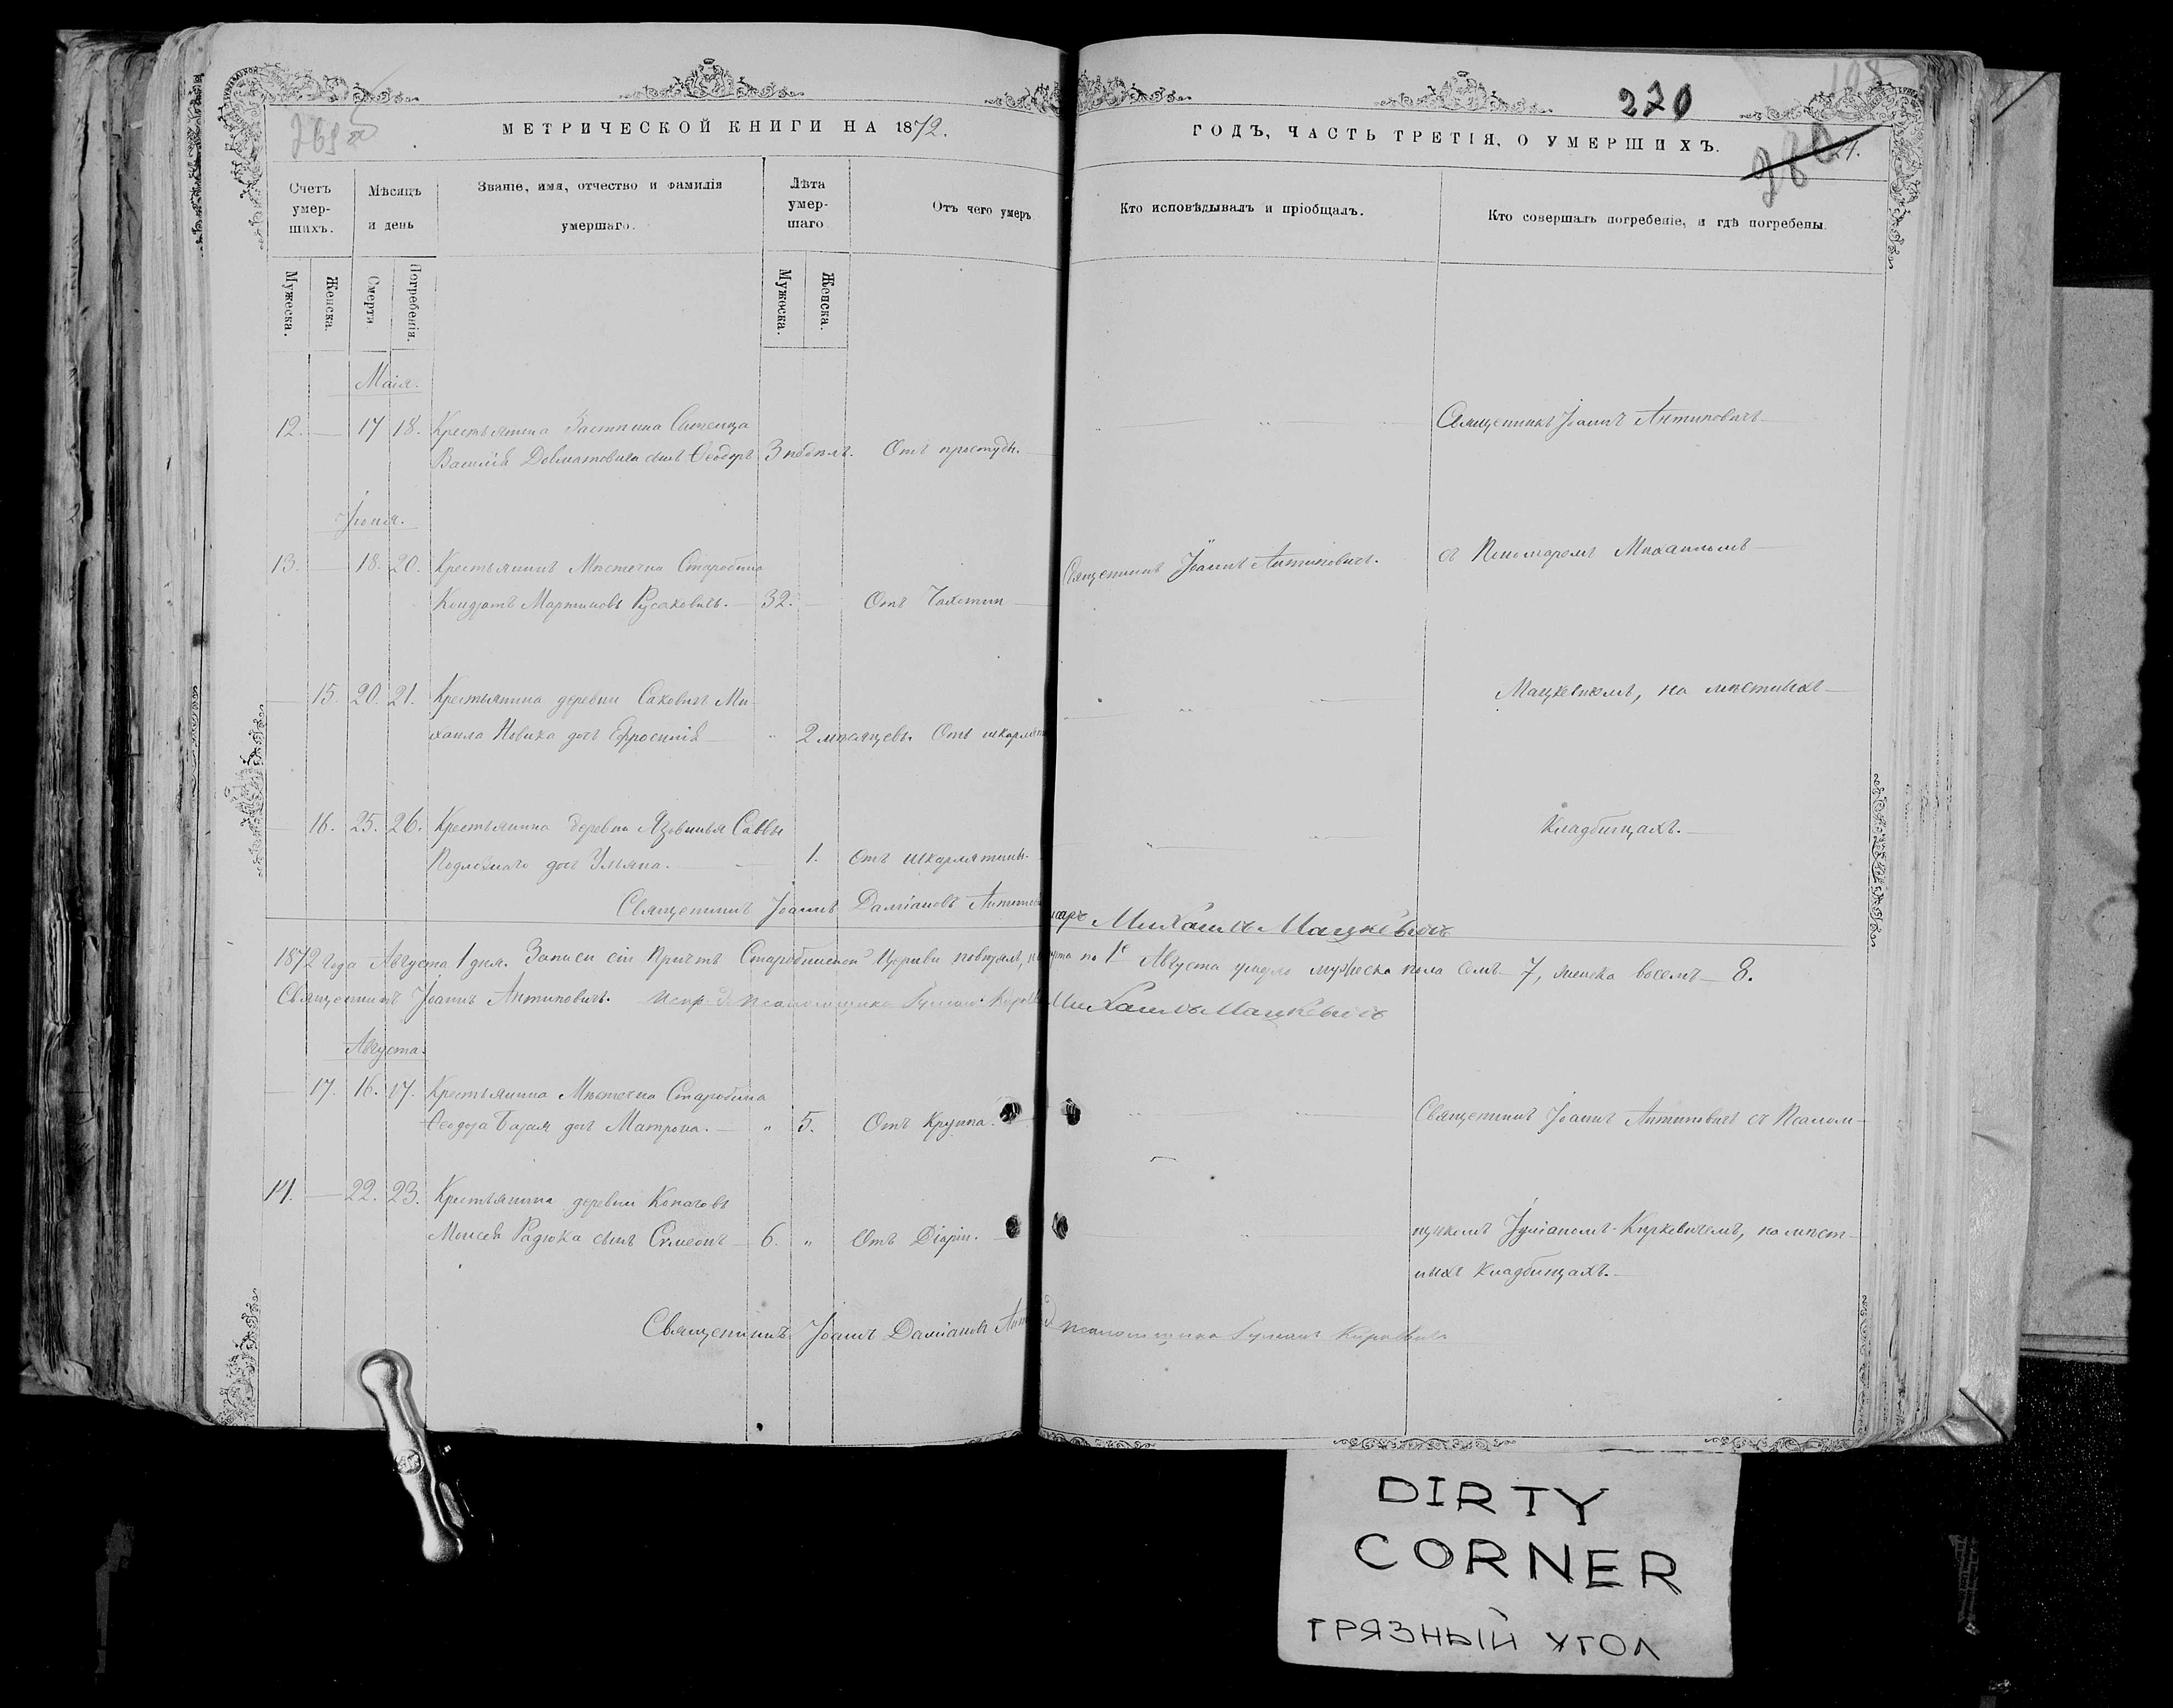 269 об
МЕТРИЧЕСКОЙ КНИГИ НА 1872.
ГОДЪ, ЧАСТЬ ТРЕТІЯ, О УМЕРШИХЪ.
270
Счетъ умер-шихъ.
Мѣсяцъ и день
Званіе, имя, отчество и фамилія умершаго.
Лѣта умер-шаго
Отъ чего умеръ
Кто исповѣдывалъ и пріобщалъ.
Кто совершалъ погребеніе, и гдѣ погребены.
Мужеска.
Женска.
Смерти
Погребенія.
Мужеска.
Женска.
Маія.
12. — 17 18. Крестьянина
Василія Довматовича сынъ Ѳеодоръ 3 недѣль. Отъ простуды.
Священникъ Іоаннъ Антиповичъ
Іюня.
13. — 18. 20. Крестьянинъ Мѣстечка Старобина
Кондратъ Мартиновъ Русаковичъ. — 32. — Отъ Чахотки
Священникъ Іоаннъ Антиповичъ.
съ Пономаремъ Михаиломъ
— 15. 20. 21. Крестьянина деревни Саковичъ Ми-
хаила Новика дочь Ефросинія — " 2 мѣсяцевъ. Отъ шкарлят
Мацкевичемъ, на мѣстныхъ
— 16. 25. 26. Крестьянина деревни Саввы
дочь Ульяна. — 1. Отъ шкарлятины.
Кладбищахъ.
Священникъ Іоаннъ Даміановъ Антипов
Михаилъ Мацкевичъ
1872 года Августа 1 дня. Записи сіи Причтъ Старобинской Церкви повѣрялъ, по 1е Августа умерло мужеска пола семь — 7, женска восемь — 8.
Священникъ Іоаннъ Антиповичъ. Испр. д. псаломщика
Михаилъ Мацкевичъ
Августа.
— 17. 16. 17. Крестьянина Мѣстечка Старобина
Ѳеодора дочь Матрона. — " 5. Отъ Круппа.
Священникъ Іоаннъ Антиповичъ съ Псалом-
14. — 22. 23. Крестьянина деревни Копачовъ
Моисея Радюка сынъ Сѵмеонъ — 6. " Отъ Діаріи.
щикомъ Іуліаномъ Киркевичемъ, на мѣст-
ныхъ Кладбищахъ.
Священникъ Іоаннъ Даміановъ
псаломщика
DIRTY
CORNER
ГРЯЗНЫЙ УГОЛ